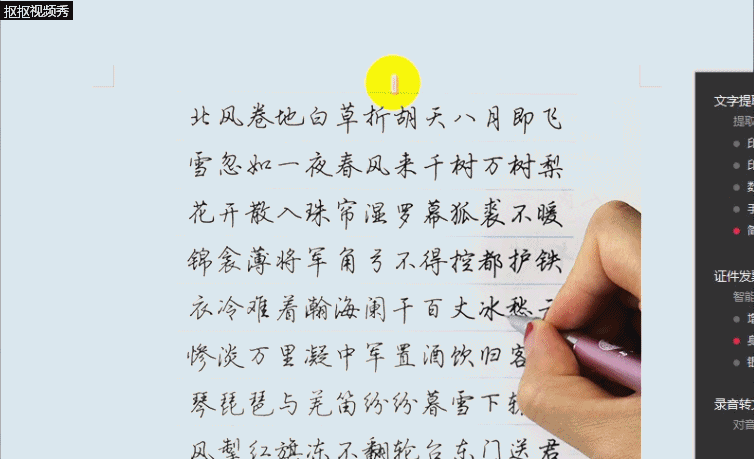 抠抠视频秀
北风卷地白草折胡天八月即飞
雪忽如一夜春风来千树万树梨
花开散入珠帘湿罗幕狐裘不暖
锦衾薄将军角弓不得控都护铁
衣冷难着瀚海阑干百丈冰愁云
惨淡万里凝中军置酒饮归客
琴琵琶与羌笛纷纷暮雪下辕
风掣红旗冻不翻轮台东门送君
文字提取
提取
印
印
数
手
简
证件发票
智能
增
身
银
录音转文
对音